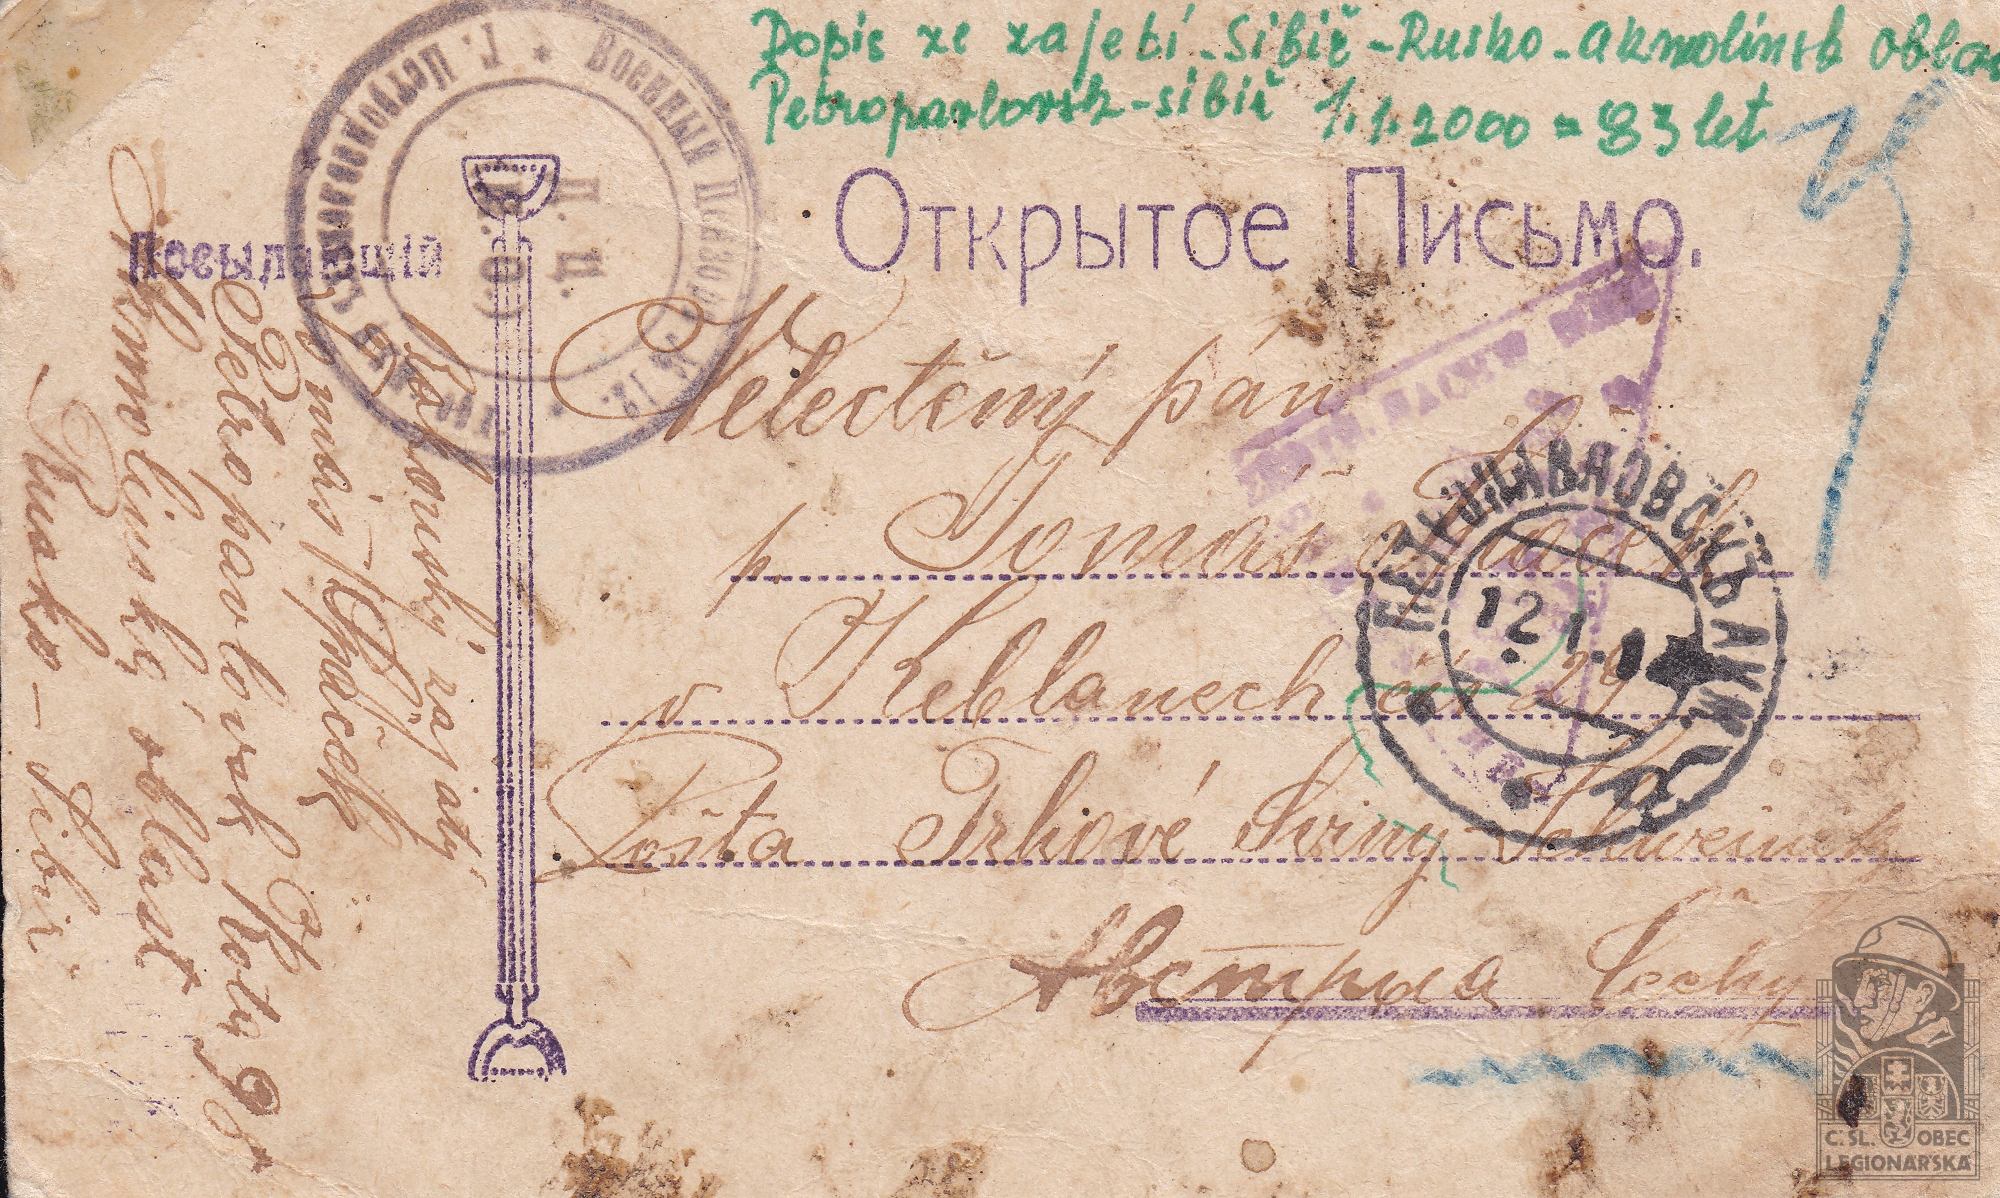 Dopis ze zajetí - Sibiř - Rusko - akmolinsk obla
Petropavlovsk - sibiř 1.1.2000 = 83 let
Открытое Письмо.
Посылающій
Военный Цензоръ
г. Петропавловска
П. Ц.
Velectěný pán
p. Tomáš
v Keblanech čís 29
Pošta Trhové Sviny - Schweinitz
Австрыа Čechy
ПЕТРОПАВЛОВСКЪ АКМ.
12.1.1
válečný zajatý
Tomáš
Petropavlovsk Rota 98
Akmolinská oblast
Rusko - Sibiř
Č. SL. OBEC
LEGIONÁŘSKÁ